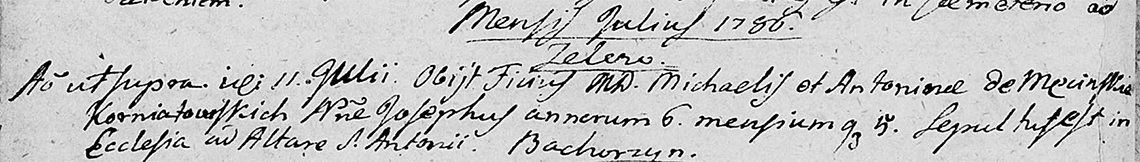 in Caemeterio ad
Mensis Julius 1786.
Zelezo.
Ao ut supra die 11. Julii. Obijt Filius MD. Michaelis et Antoninae de Mecinskie
Korniatowskich Nne Josephus annorum 6. mensium 5. Sepultus est in
Ecclesia ad Altare S. Antonii. Bachorzyn.